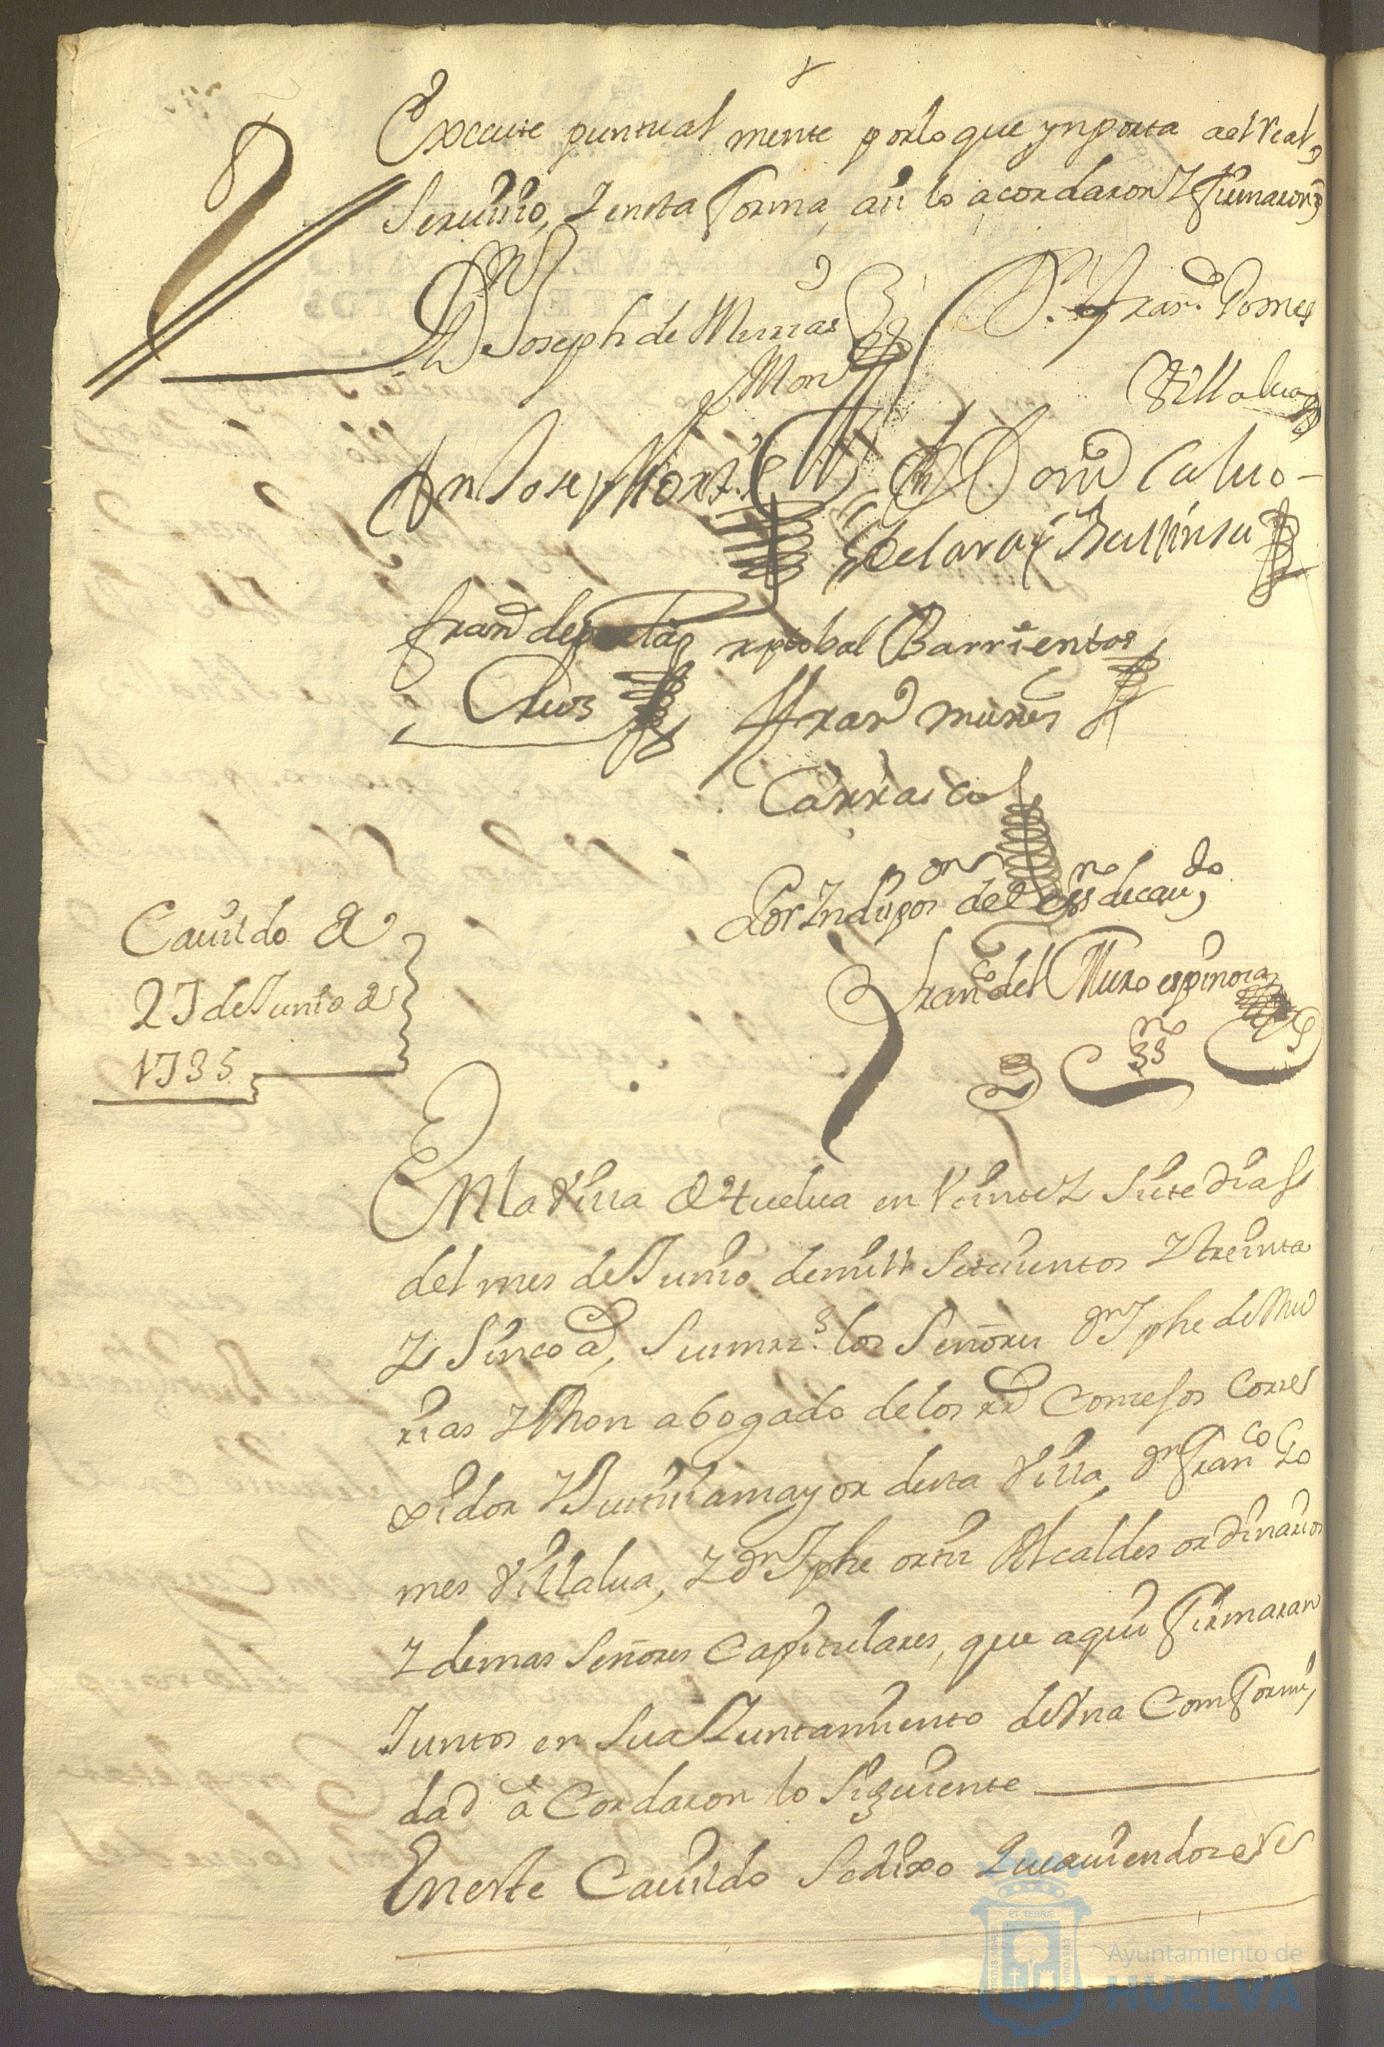 Execute puntual mente porlo que ynporta ael Real
Seruiçio, Y enesta forma, asi lo acordaron Y firmaron
Dn Joseph de Murias
Y Mon
Dn Franco Gomes
Villalua
Dn Joseph Ortiz
Domo Caluo
de la
franco de
Rios
xptobal Barrientos
Franco munes
Carrasco
Por Yndispon del essno de cauдo
Franco del Muro espinosa
essno
Cauildo de
27 de Junio de
1735
En la Villa de Huelua en Veinte Y Siete dias
del mes de Junio de mill Setecientos Y treinta
Y Sinco as, Sus mrzs. los Señores Dn Jphe de Mu
rias Y Mon abogado de los Rs Consejos Corre
xidor Y Justicia mayor desta Villa, Dn Franco Go
mes Villalua, Y Dn Jphe ortiz Alcaldes ordinarios
Y demas Señores Capitulares, que aqui firmaran
Juntos en Su a Yuntamiento de Vna Comformi,
dad a Cordaron lo Siguiente
En este Cauildo Se dixo que auiendose
Ayuntamiento de
HUELVA